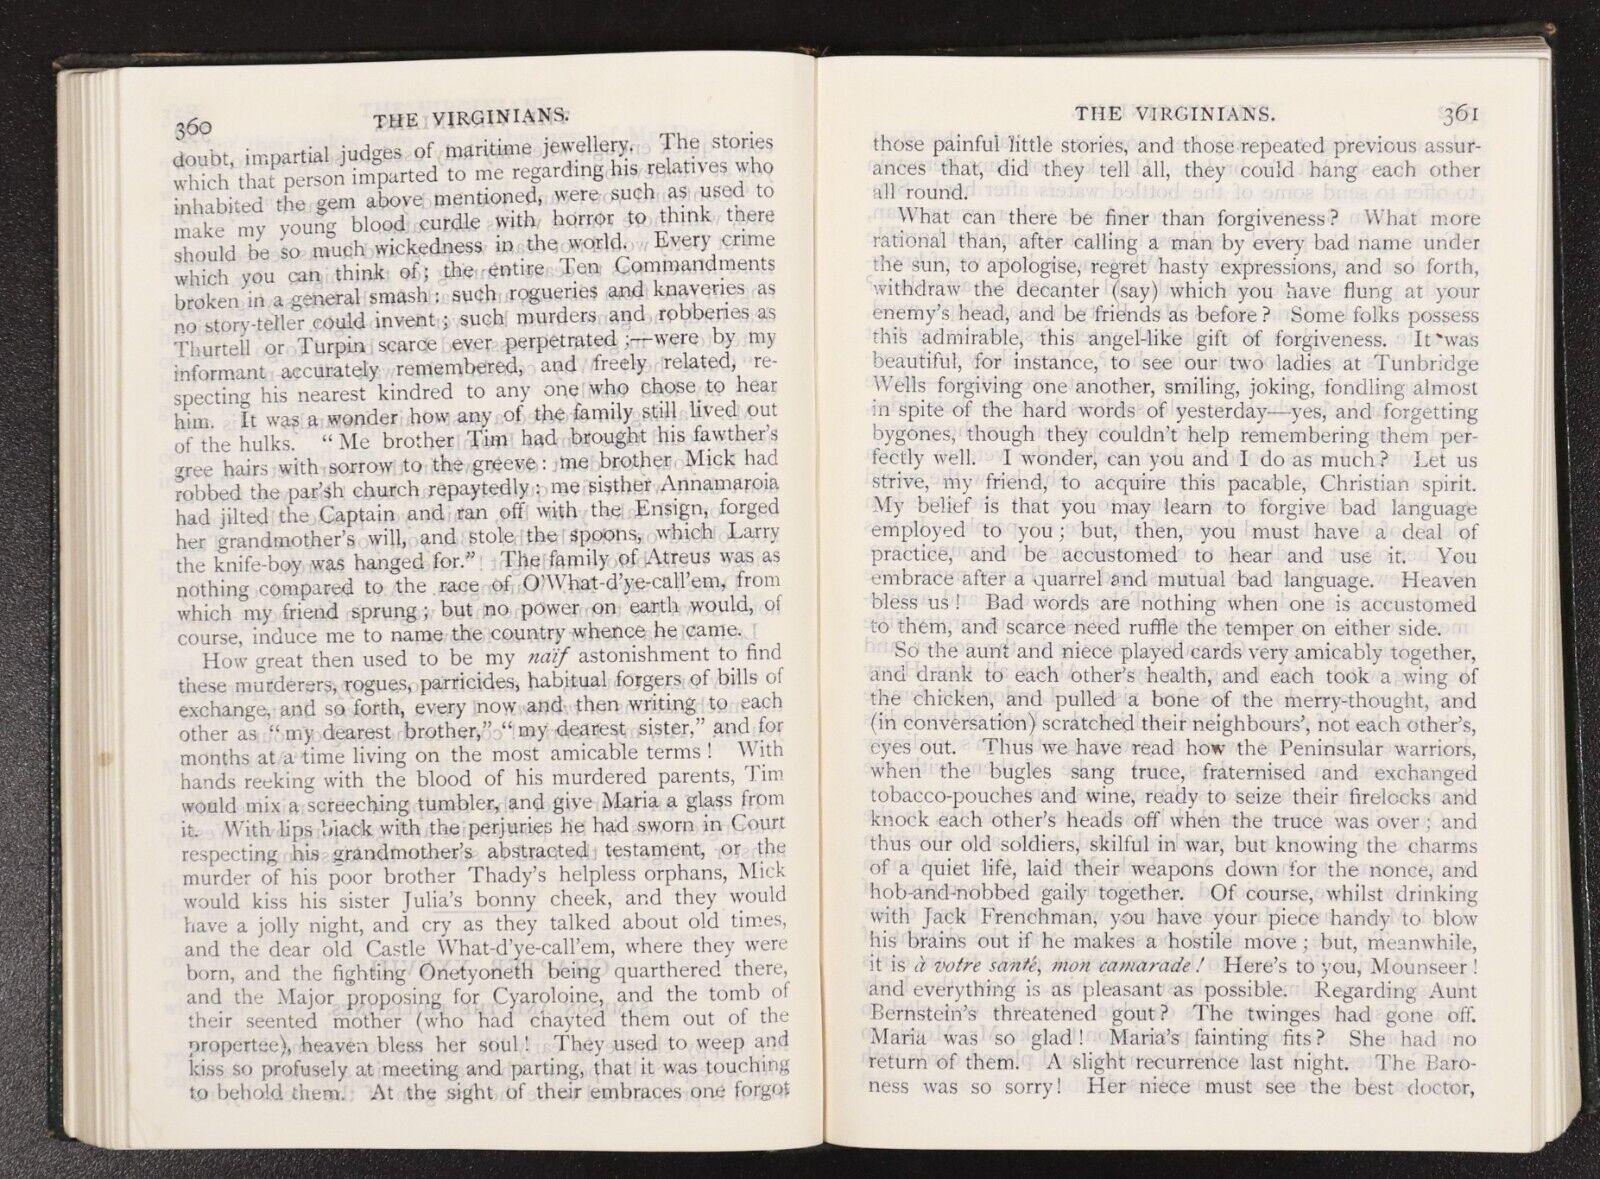 360
THE VIRGINIANS.
doubt, impartial judges of maritime jewellery. The stories
which that person imparted to me regarding his relatives who
inhabited the gem above mentioned, were such as used to
make my young blood curdle with horror to think there
should be so much wickedness in the world. Every crime
which you can think of; the entire Ten Commandments
broken in a general smash; such rogueries and knaveries as
no story-teller could invent; such murders and robberies as
Thurtell or Turpin scarce ever perpetrated;—were by my
informant accurately remembered, and freely related, re-
specting his nearest kindred to any one who chose to hear
him. It was a wonder how any of the family still lived out
of the hulks. "Me brother Tim had brought his fawther's
gree hairs with sorrow to the greeve: me brother Mick had
robbed the par'sh church repaytedly: me sisther Annamaroia
had jilted the Captain and ran off with the Ensign, forged
her grandmother's will, and stole the spoons, which Larry
the knife-boy was hanged for." The family of Atreus was as
nothing compared to the race of O'What-d'ye-call'em, from
which my friend sprung; but no power on earth would, of
course, induce me to name the country whence he came.
How great then used to be my naïf astonishment to find
these murderers, rogues, parricides, habitual forgers of bills of
exchange, and so forth, every now and then writing to each
other as "my dearest brother," "my dearest sister," and for
months at a time living on the most amicable terms! With
hands reeking with the blood of his murdered parents, Tim
would mix a screeching tumbler, and give Maria a glass from
it. With lips black with the perjuries he had sworn in Court
respecting his grandmother's abstracted testament, or the
murder of his poor brother Thady's helpless orphans, Mick
would kiss his sister Julia's bonny cheek, and they would
have a jolly night, and cry as they talked about old times,
and the dear old Castle What-d'ye-call'em, where they were
born, and the fighting Onetyoneth being quarthered there,
and the Major proposing for Cyaroloine, and the tomb of
their seented mother (who had chayted them out of the
propertee), heaven bless her soul! They used to weep and
kiss so profusely at meeting and parting, that it was touching
to behold them. At the sight of their embraces one forgot
THE VIRGINIANS.
361
those painful little stories, and those repeated previous assur-
ances that, did they tell all, they could hang each other
all round.
What can there be finer than forgiveness? What more
rational than, after calling a man by every bad name under
the sun, to apologise, regret hasty expressions, and so forth,
withdraw the decanter (say) which you have flung at your
enemy's head, and be friends as before? Some folks possess
this admirable, this angel-like gift of forgiveness. It was
beautiful, for instance, to see our two ladies at Tunbridge
Wells forgiving one another, smiling, joking, fondling almost
in spite of the hard words of yesterday—yes, and forgetting
bygones, though they couldn't help remembering them per-
fectly well. I wonder, can you and I do as much? Let us
strive, my friend, to acquire this pacable, Christian spirit.
My belief is that you may learn to forgive bad language
employed to you; but, then, you must have a deal of
practice, and be accustomed to hear and use it. You
embrace after a quarrel and mutual bad language. Heaven
bless us! Bad words are nothing when one is accustomed
to them, and scarce need ruffle the temper on either side.
So the aunt and niece played cards very amicably together,
and drank to each other's health, and each took a wing of
the chicken, and pulled a bone of the merry-thought, and
(in conversation) scratched their neighbours', not each other's,
eyes out. Thus we have read how the Peninsular warriors,
when the bugles sang truce, fraternised and exchanged
tobacco-pouches and wine, ready to seize their firelocks and
knock each other's heads off when the truce was over; and
thus our old soldiers, skilful in war, but knowing the charms
of a quiet life, laid their weapons down for the nonce, and
hob-and-nobbed gaily together. Of course, whilst drinking
with Jack Frenchman, you have your piece handy to blow
his brains out if he makes a hostile move; but, meanwhile,
it is à votre santé, mon camarade! Here's to you, Mounseer!
and everything is as pleasant as possible. Regarding Aunt
Bernstein's threatened gout? The twinges had gone off.
Maria was so glad! Maria's fainting fits? She had no
return of them. A slight recurrence last night. The Baro-
ness was so sorry! Her niece must see the best doctor,